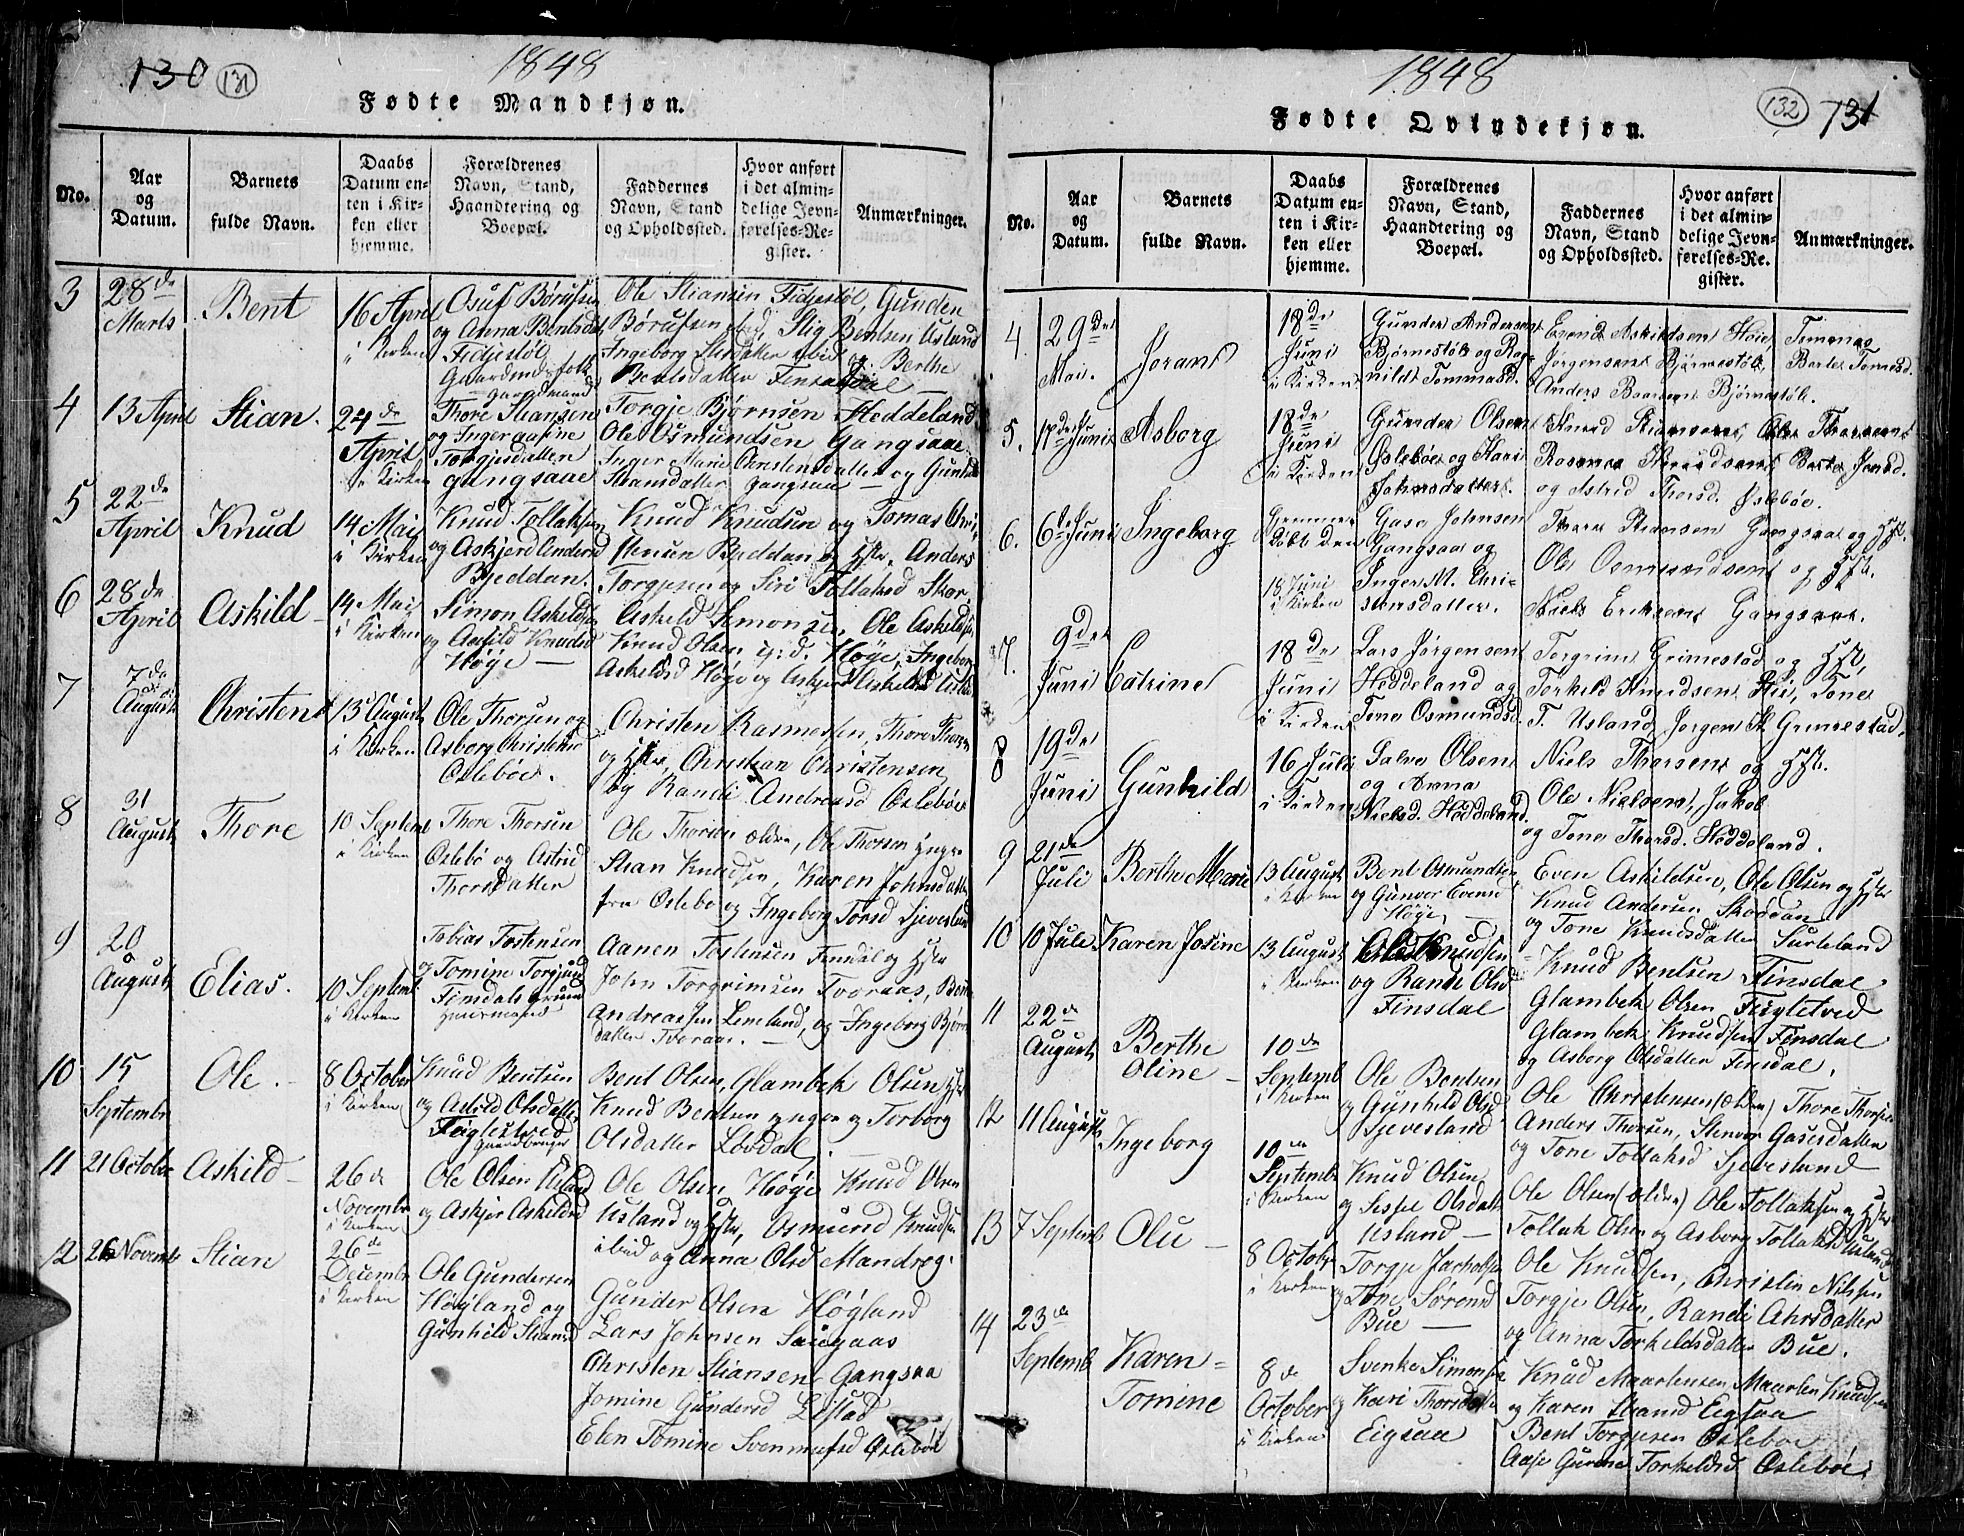 130 (131)
1848
Fødte Mandkjøn.
No.
Aar og Datum.
Barnets fulde Navn.
Daabs Datum enten i Kirken eller hjemme.
Forældrenes Navn, Stand, Haandtering og Boepæl.
Faddernes Navn, Stand og Opholdssted.
Hvor anført i det almindelige Jevnførelses-Register.
Anmærkninger.
3
28de Marts
Bent
16 April i Kirken
Osuf Børufsen
og Anna Bentsdat
Fidjestøl
Gaardmandsfolk
Ole Stiansen Fidjestøl, Gunder
Børufsen ibid, Stig Bentsen Usland
Ingeborg ibid og Berthe
Bentsdatter Finsdal
4
13 April
Stian.
24de April i Kirken
Gaardmand
Thore Stiansen
og Inger
Torgjesdatter
Gangsaae
Torgje Bjørnsen Heddeland
Ole Osmundsen Gangsaae
Inger Marie Christensdatter og Gunhild
Stiansdatter Gangsaa
5
22de April
Knud
14 Mai i Kirken
Knud Tollaksen
og Askjerd Andersd
Bjeddan.
Knud Knudsen og Tomas Chri-
stensen Bjeddan og Hstr, Anders
Torgjesen og Siri Tollaksd Skor
6
28de April
Askild
14 Mai i Kirken
Simon Askildsen
og Knudsd
Høye
Askild Simonsen, Ole Askildsen
Knud Olsen Høye, Ingeborg
Askildsd Høye og Askjer Askildsd
7
7de August
Christen
13 August i Kirken
Ole Thorsen og
Asborg Christensd
Oslebøe.
Christen Rasmussen, Thore Thorsen
og Hstr, Christian Christensen
og Randi Andreasd Oslebøe
8
31 August
Thore
10 Septemb i Kirken
Thore Thorsen
Oslebø og Astrid
Thorsdatter
Ole Thorsen ældre, Ole Thorsen yngre
Stian Knudsen, Karen Johnsdatter
fra Oslebø og Ingeborg Torsd Sjevesland
9
20 August
Elias.
10 Septemb i Kirken
Tobias Tostensen
og Tomine Torgjusd
Finsdals grund
Huusmand
Aanen Tostensen Finsdal og Hstr
John Torgrimsen Tvoraas, Bent
Andreassen Leneland, og Ingeborg Bjørns
datter Tvoraas.
10
15 Septembr
Ole.
8 October i Kirken
Knud Bentsen
og Astrid Olsdatter
Fuglestved
Gaardbruger
Bent Olsen, Glambek Olsen Hstr
Knud Bentsen yngre og Torborg
Olsdatter Lovdal
11
21 Octobr
Askild
26de Novembr i Kirken
Ole Olsen Usland
og Askjer Askildsd
Ole Olsen Høye Knud Olsen
Usland og Hstr, Osmund Knudsen
ibid og Anna Olsd Mandreg.
12
26 Novembr
Stian
26de Decembr i Kirken
Ole Gundersen
Høyland og
Gunhild Stiansd
Gunder Olsen Høgland
Lars Johnsen Saugaas
Christen Stiansen Gangsaa
Jomine Gundersd Lestad
Elen Tomine Svenmufsd Oslebøe
1848
(132) 131
Fødte Qvindekjøn.
No.
Aar og Datum.
Barnets fulde Navn.
Daabs Datum enten i Kirken eller hjemme.
Forældrenes Navn, Stand, Haandtering og Boepæl.
Faddernes Navn, Stand og Opholdssted.
Hvor anført i det almindelige Jevnførelses-Register.
Anmærkninger.
4.
29de Mai.
Joran
18de Juni i Kirken
Gunder Andersen
Bjørnestøl og Rag-
nild Tommasd.
Evend Askildsen Høie, Tommas
Jørgensen Bjørnestøl, Berte Tomesd.
Anders Bjørnestøl.
5.
17de Juni
Asborg
18de Juni i Kirken
Gunder Olsen
Oslebøe og Kari
Johnsdatter.
Knud Stiansen, Ole Thorsen
Rasmus Knudsen Berte Jensd.
og Astrid Thorsd. Oslebøe.
6.
6te Juni
Ingeborg
Hjemme døbt den 18 Juni i Kirken
Gase Johnsen
Gangsaa og
Inger M. Chri-
stensdatter.
Thore Stiansen Gangsaa og Hst.
Ole Osmundsen og Hst.
Niels Eriksen Gangsaae.
7.
9de Juni
Catrine
18de Juni i Kirken
Lars Jørgensen
Heddeland og
Tone Osmundsd.
Torgrim Grimestad og Hst,
Torkild Knudsen Hie, Tone
T. Usland, Jorgen Grimestad.
8
19de Juni
Gunhild
16 Juli i Kirken
Salve Olsen
og Anna
Nielsd. Heddeland.
Niels Thorsen og Hst.
Ole Nielsen, Jakob
og Tone Thorsd. Heddeland.
9
21de Juli
Berthe Marie
13 August i Kirken
Bent Osmundsen
og Gunvor Evensd
Høye
Even Askildsen, Ole Olsen og Hstr
Knud Andersen Skoddan
og Tone Knudsdatter Surteland
10
10 Juli
Karen Josine
13 August i Kirken
Knudsen
og Randi Olsd
Finsdal
Knud Bentsen Finsdal
Glambek Olsen Fuglstved
Glambek Knudsen Finsdal
og Asborg Olsdatter Finsdal.
11
22de August
Berthe Oline
10de Septemb i Kirken
Ole Bentsen
og Gunhild Olsd
Sjevesland
Ole Christensen (ælder) Thore Thorsen
Anders Thorsen, Stenvor Gasesdatter
og Tone Tollaksd Sjevesland
12
11 August
Ingeborg
10de Septembr i Kirken
Knud Olsen
og Sissel Olsdatt
Usland
Ole Olsen (ældre) Ole Tollaksen og Hstr
Tollak Olsen og Asborg Tollaksd Usland
13
7 Septemb
Olu
8 October i Kirken
Torgje Jarholsen
og Tone Sørensd
Bue
Ole Knudsen, Christin Nilsen
Torgje Olsen, Randi Ahrsdatter
og Anna Torkildsdatter Bue.
14
23de Septemb
Karen Tomine
8de October i Kirken
Svenke Simonsen
og Kari Thorsdatter
Eigsaa
Knud Maartensen, Maarten Knudsen
og Karen Stiansd Eigsaa
Bent Torgusen Oslebøe
Aase Gurine Torkildsd Oslebøe